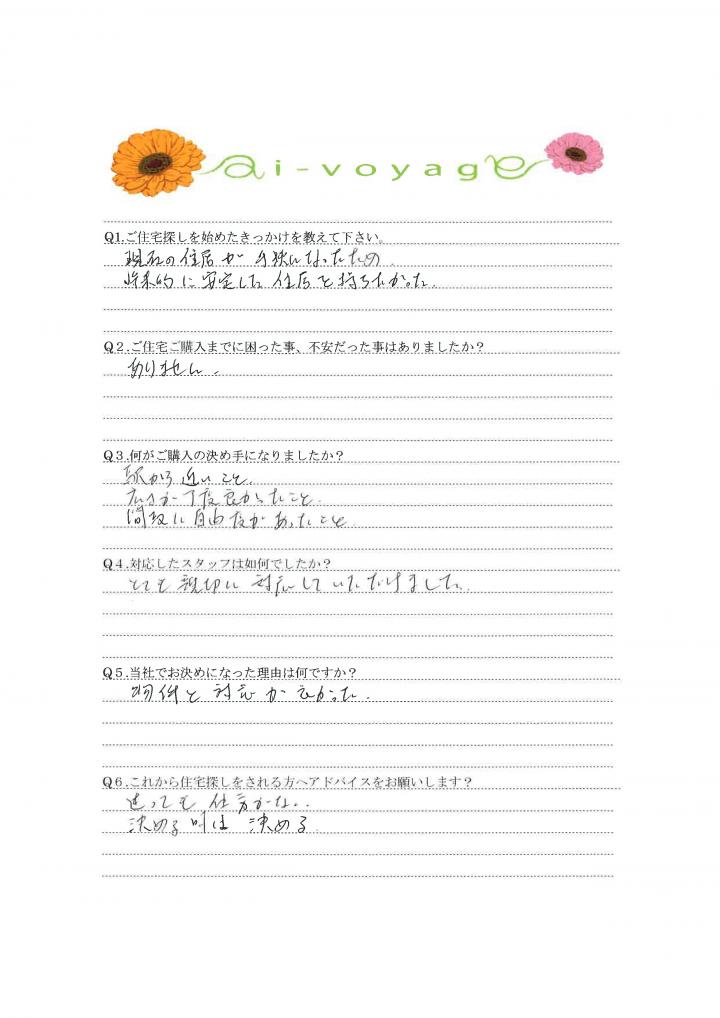 ai-voyage
Q1.ご住宅探しを始めたきっかけを教えて下さい。
現在の住居が手狭になったため.
将来的に安定した住居を持ちたかった.
Q2.ご住宅ご購入までに困った事、不安だった事はありましたか？
ありません.
Q3.何がご購入の決め手になりましたか？
駅から近いこと.
広さが丁度良かったこと.
間取に自由度があったこと.
Q4.対応したスタッフは如何でしたか？
とても親切に対応していただけました.
Q5.当社でお決めになった理由は何ですか？
物件と対応が良かった.
Q6.これから住宅探しをされる方へアドバイスをお願いします？
迷っても仕方がない.
決める時は決める.